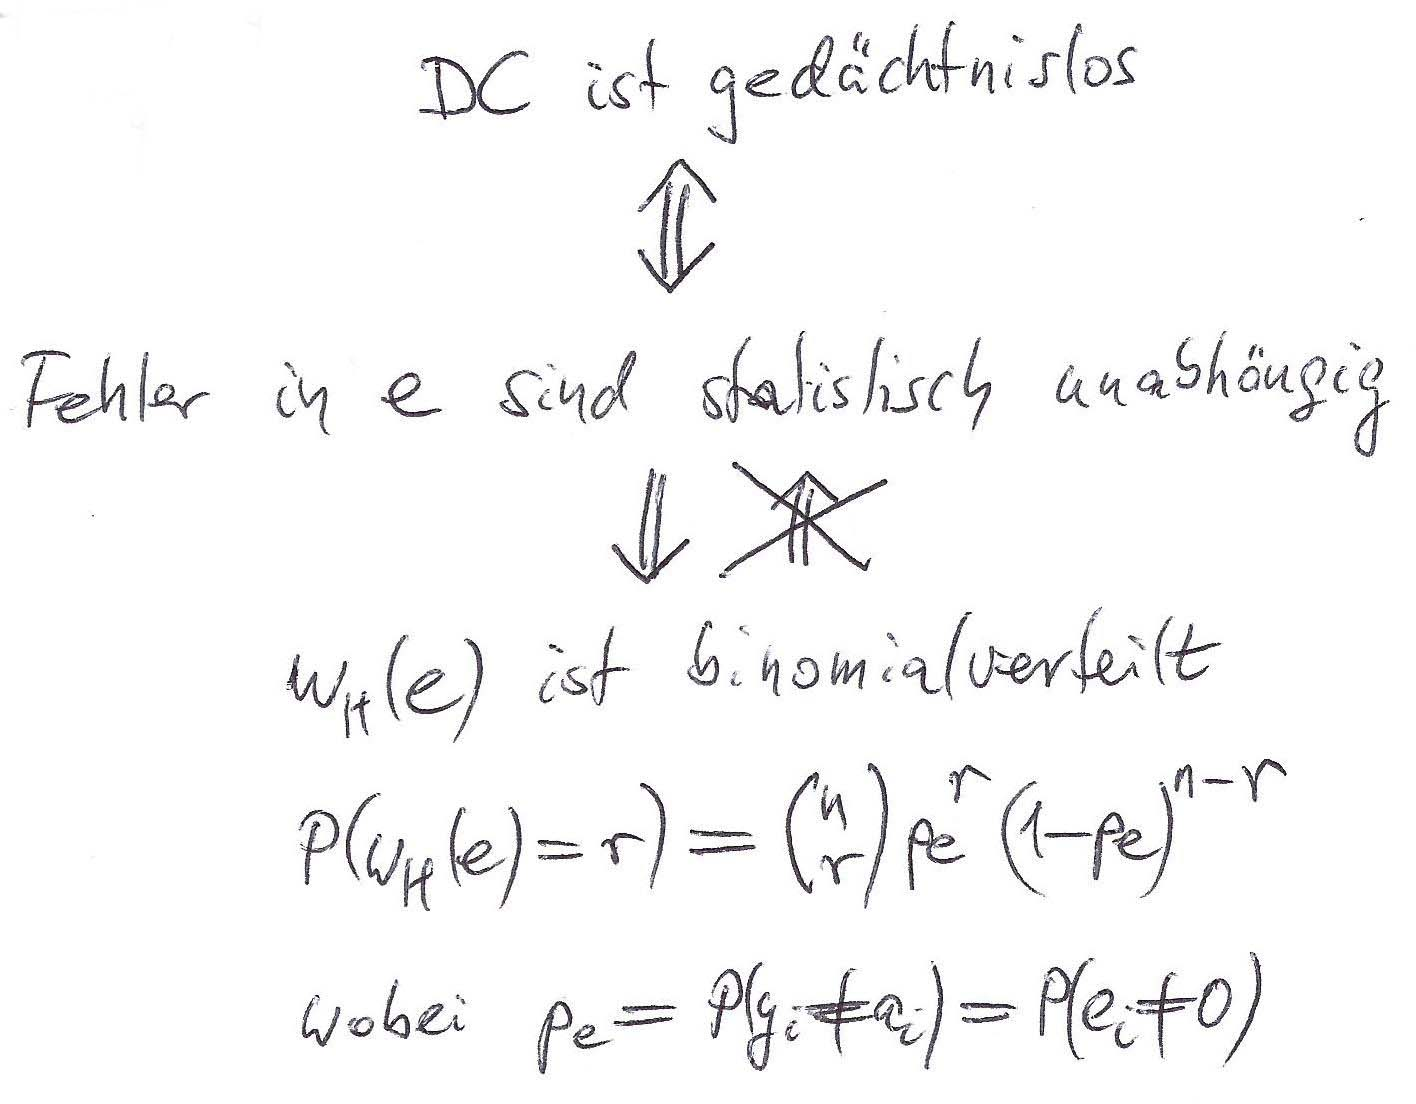 DC ist gedächtnislos
⇕
Fehler in e sind statistisch unabhängig
⇓ ⇑
w_H(e) ist binomialverteilt
P(w_H(e) = r) = (n r) p_e^r (1-p_e)^{n-r}
wobei p_e = P(y_i ≠ a_i) = P(e_i ≠ 0)